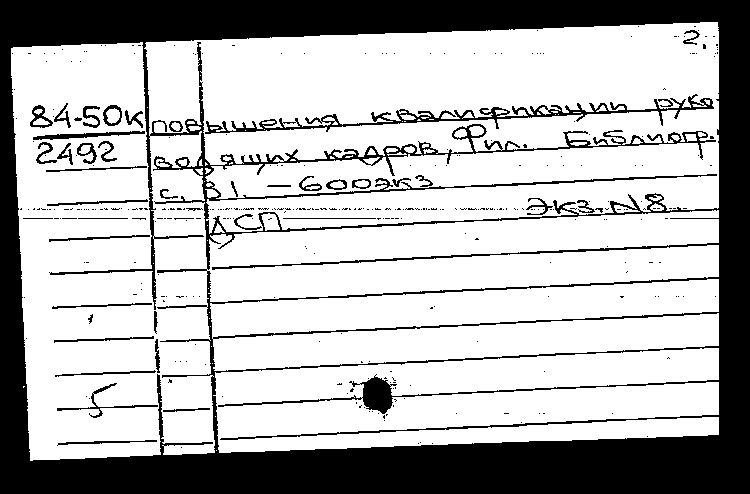 2.
84-50к повышения квалификации руко-
2492 водящих кадров, Фил. Библиогр.:
с. 31. – 600экз
ДСП Экз. N8.
5